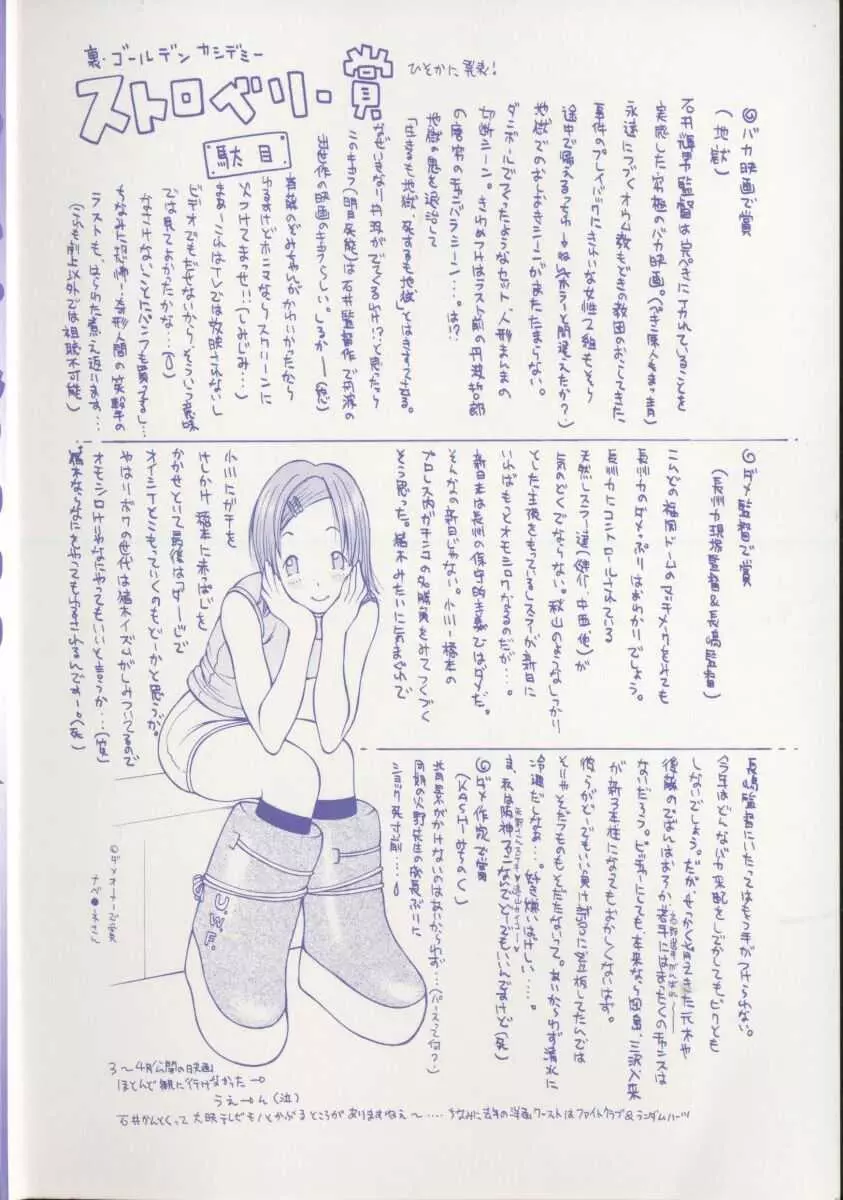 裏・ゴールデン カンデミー
ストロベリー・賞
ひそかに発表!
駄目
◎バカ映画で賞
(地獄)
石井輝男監督は完ぺきにイカれていることを
実感した究極のバカ映画。(ぺき原人もまっ青)
永遠につづくオウム数もどきの教団のおこしてきた
事件のプレイバックに
途中で帰える
地獄でのおしおきシーンがまたたまらない。
ダンボールでつくったようなセット・人形まるまるの
切断シーン。きわめつけはラスト前の丹波哲郎
の唐突のチャンバラシーン…。は!?
地獄の鬼を退治して
「生きるも地獄・死するも地獄」とはきすてさる。
なぜいきなり丹波がでてくるんだ!?と思ったら
このキャラ(明日死能)は石井監督作で丹波の
主演作の映画のキャラらしい。しるかーー(怒)
父つけてまっせ!!(しみじみ…)
まぁーこんなはTVでは放映されないし
ビデオでもだせないから。そういう意味
では見てよかったかな…
なさけないことにパンフも買うするし…
ちなみに恐怖・奇形人間の笑撃の
ラストも、はらわた煮え返ります…
◎ダメ監督で賞
(長州力現場監督&長嶋監督)
こんどの福岡ドームのマッチメークをみても
長州力のダメっぷりはおわかりでしょう。
長州力にコントロールされている
天然レスラー達(健介、中西他)が
気のどくでならない。秋山のようなしっかり
とした主張をもっているレスラーが新日に
いればもっとオモシロクなるのだが…。
新日本は長州の保守的主義ではダメだ。
そんなの新日じゃない。小川ー橋本の
プロレス大賞がチンコの
そう思った。猪木みたいに気まぐれで
小川にガチを
けしかけ橋本に赤っぱじを
かかせといて最後はアダージで
オイシイとこもっていくのもどーかと思うが。
やはりボクの世代は猪木イズムがしみついてるので
オモシロけりゃなにやってもいいと言うか…(笑)
猪木ならなにをやってもゆるされるんですー。(死)
長嶋監督にいたってはもう手がつけられない。
今年はどんなバカ采配をしでかしてもビクとも
しないでしょう。だがせっかく育ってきた元木や
後藤のでばんはおろか若手にはまったくのチャンスは
ないだろう。ピッチャーにしても、本来なら岡島、三沢、入来
が新3本柱になってもおかしくないはず。
彼らがどーでもいい負け試合に登板してたんでは
そりゃそだつものもそだたないって。あいかわらず清水に
冷遇だしなぁ…。好き嫌いはげしい……。
ま、私は阪神ファンなんでどーでもいいんですけど(死)
◎ダメ作家で賞
(KASHIみちのく)
背景がかけないのはあいかわらず…(パースって何?)
同期の火野先生の成長ぶりに
ショック死寸前……
◎ダメオーナーで賞
ナベ●ネさん
U.W.F.
3〜4月公開の日映画
ほとんど観に行けなかった→
うえーん(泣)
石井かんとくって大映テレビモノとかぶるところがありますねえ〜…… ちなみに去年の洋画ワーストはファイトクラブ&ランダムハーツ